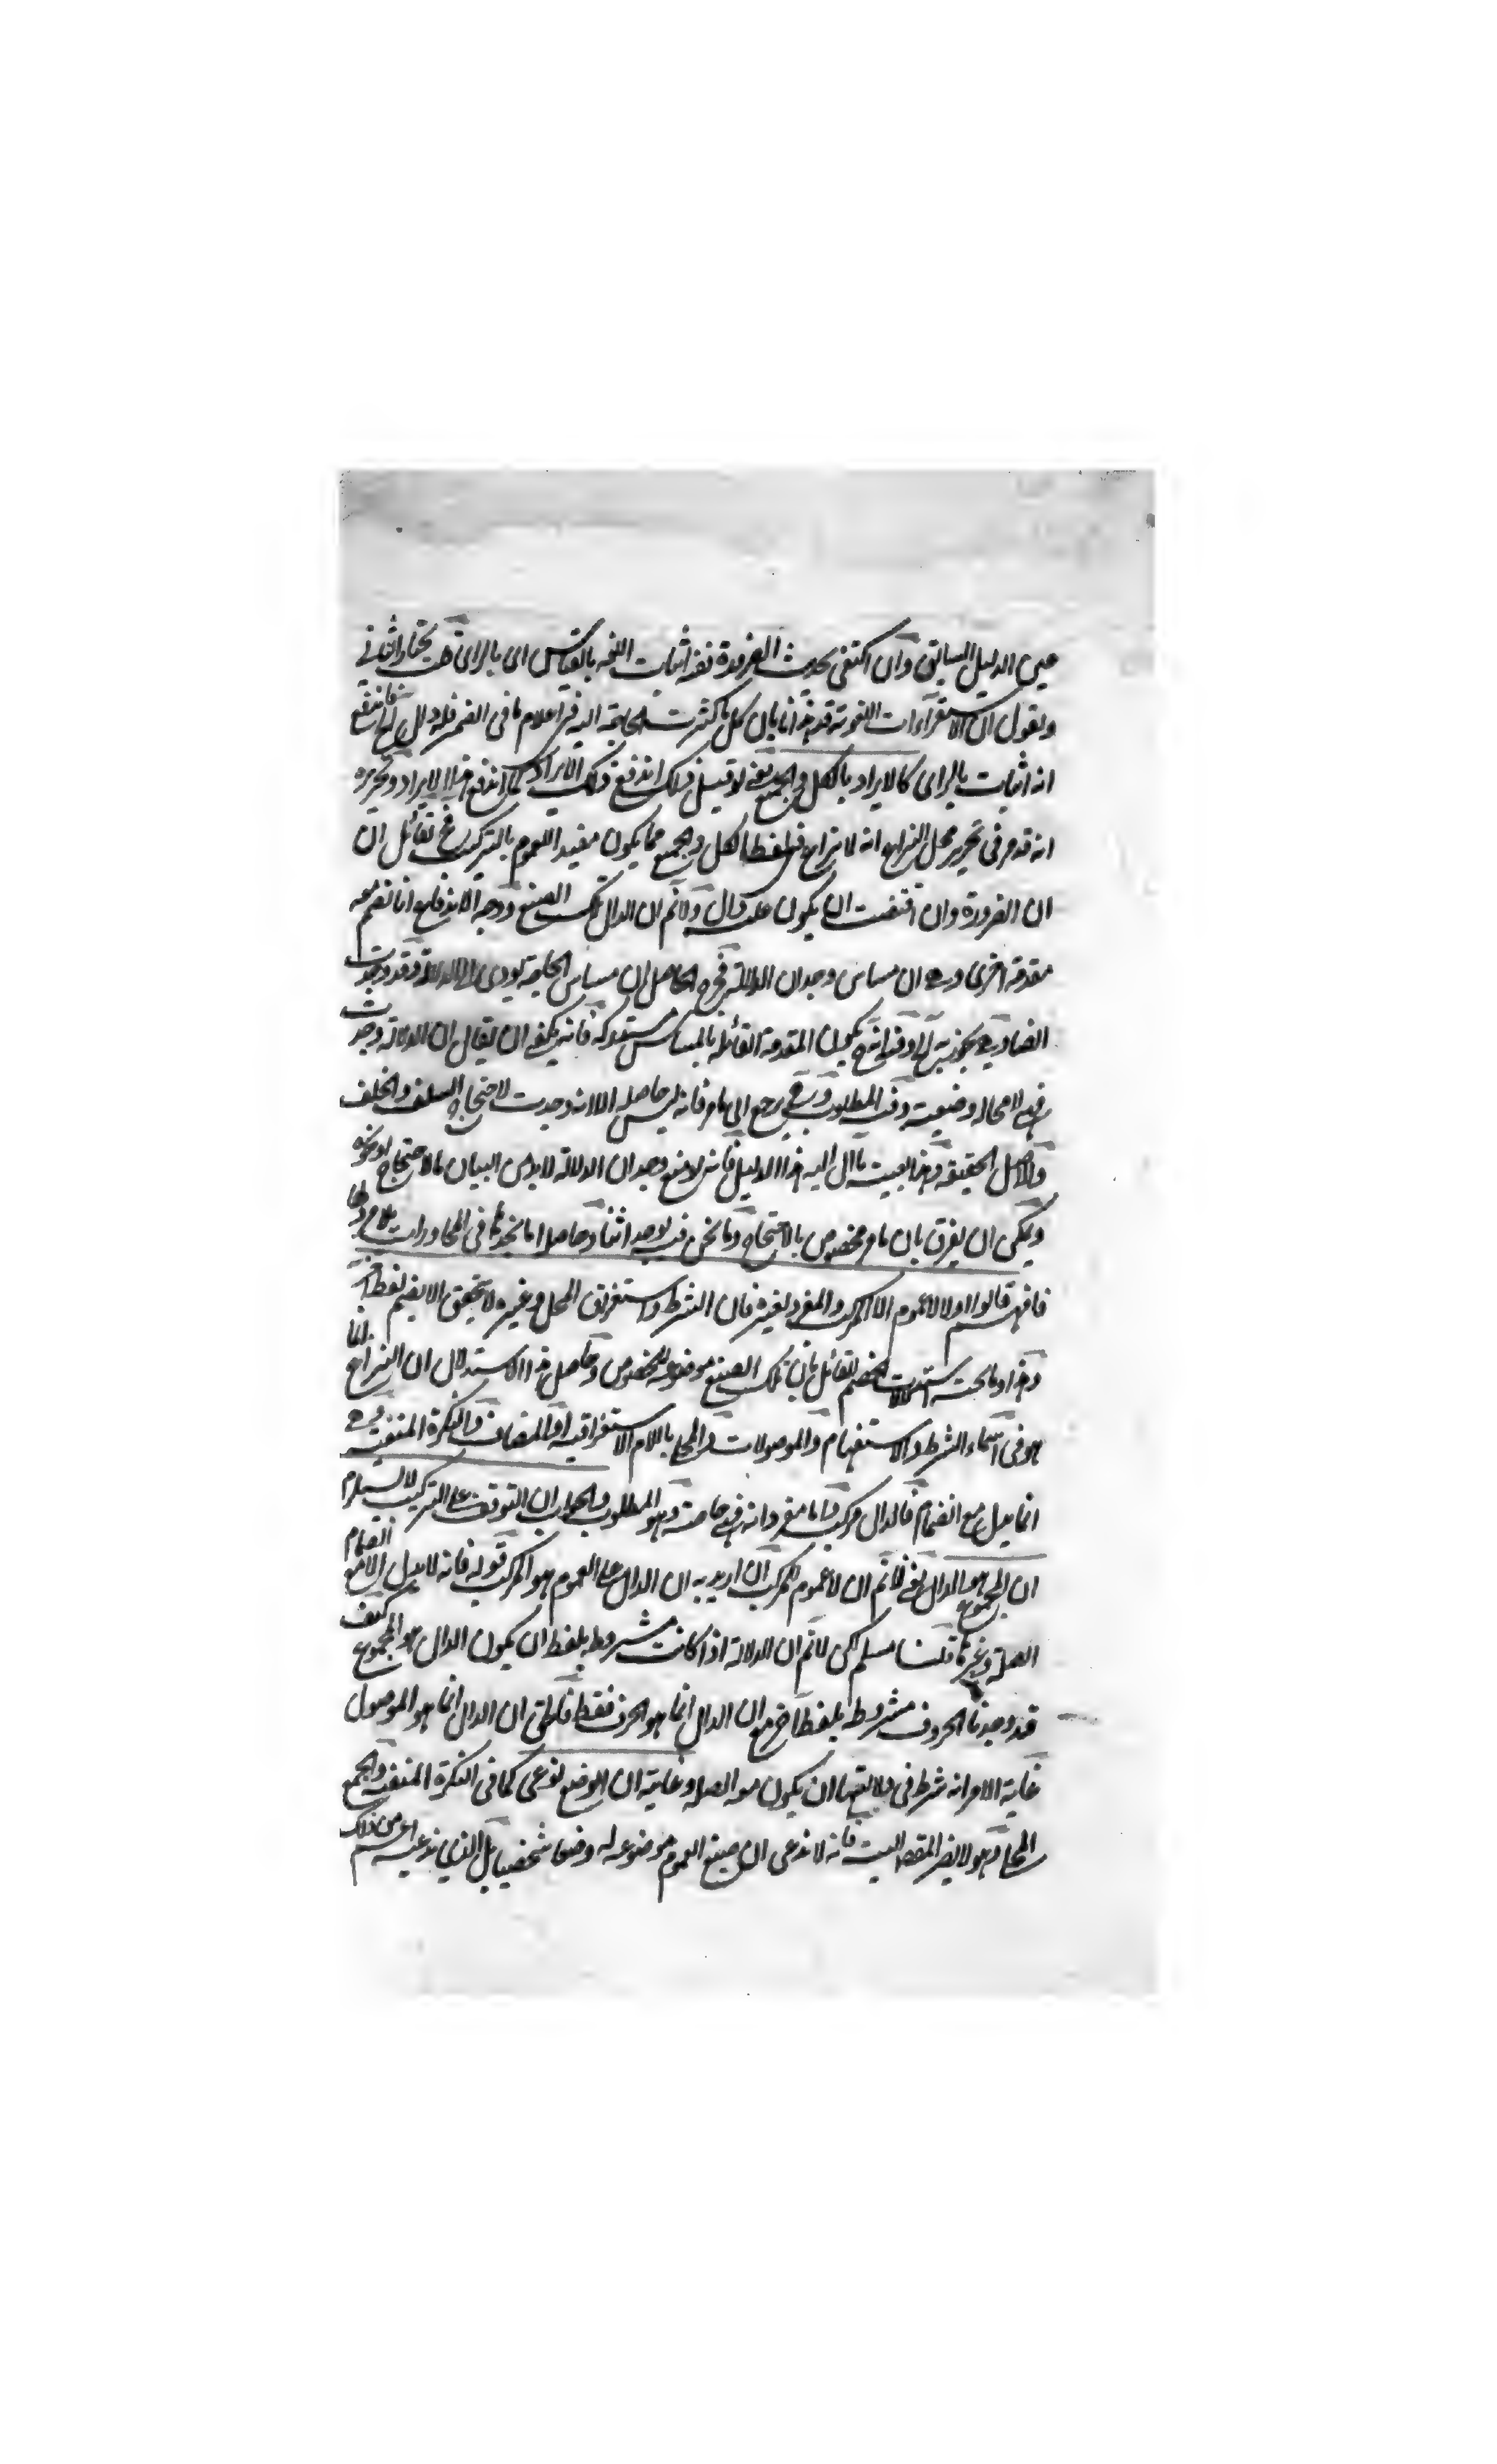 عين الدليل السابق وان اكتفى بحديث الضرورة نفيه اثبات اللغة بالقياس اى بالراى قلت نختار الثاني
ونقول ان الاستقراءات اللغوية قد افادتنا بان كل ما كثرت الحاجة اليه في اعلام ما في الضمير فله دال فاندفع
انه اثبات بالراى كالايراد بالكل والجميع يعنى لو قيل فلك اندفع ذلك الايراد كما اندفع هذا الايراد وتحريره
انه قد مر فى تحرير محل النزاع انه لا نزاع فى لفظ الكل والجميع مما يكون مفيد العموم بالتركيب فلقائل ان
ان الضرورة وان اقتضت ان يكون عليه دال ولا نم ان الدال تلك الصيغ ووجه الاندفاع انا نضم معه
مقدمة اخرى وهى ان مساس وجدان الدلالة فخرج الحاصل ان مساس الحاجة يودى الى الدلالة وقد وجدت
يكون المقدمة القائلة بالمساس مستدركة فانه يكفى ان يقال ان الدلالة وجدت
فهى لا محالة وضعية وفيه المطلوب يرجع الى ما مر فانه ليس حاصله الا انه وجدت لاحتجاج السلف والخلف
والاصل الحقيقة وهذا بعينه مآل اليه هذا الدليل فانه لا منع وجدان الدلالة لا بد من البيان بالاحتجاج او نحوه
ويمكن ان يفرق بان ما مر مخصوص بالاحتجاج وما نحن فيه يوجد اثناء وحاصله انا نجد ما فى المحاورات
فافهم قالوا اولا لا عموم الا لمركب والمفرد لغيره فان الشرط والاستغراق المحلى وغيره لا يتحقق الا بضم لفظ آخر
وهذا وما تحته استدلالات الخصم القائل بان تلك الصيغ موضوعة للخصوص وحاصل هذا الاستدلال ان النزاع انما
هو فى اسماء الشرط والاستفهام والموصولات والمحلى باللام الاستغراقية او المضاف والنكرة المنفية وهى
انما يدل مع انضمام فالدال مركب واما مفردا فهى خاصة وهو المطلوب والجواب ان التوقف على التركيب لا يستلزم
ان المجموع هو الدال يعنى لا نم ان لا عموم الا لمركب ان اريد به ان الدال على العموم هو المركب قوله فانه لا يدل الا مع انضمام
الصلة وغيرها قلنا مسلم لكن لا نم ان الدلالة اذا كانت مشروطة بلفظ ان يكون الدال هو المجموع كيف
قد وجدنا الحروف مشروطة بلفظ آخر مع ان الدال انما هو الحرف فقط فالحق ان الدال انما هو الموصول
غاية الامر انه شرط فى دلالتها ان يكون معه الصلة وغايته ان الوضع نوعى كما فى النكرة المنفية والجمع
المحلى وهو لا يضر المقصد البتة فانه لا ندعى ان صيغ العموم موضوعة له وضعا شخصيا بل الذى ندعيه اعم من ذلك